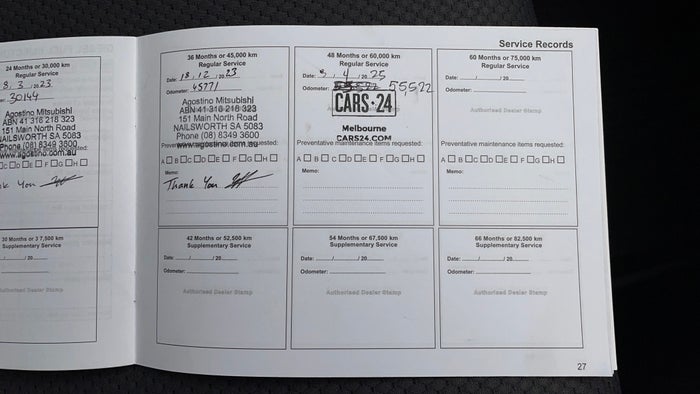 Service Records
24 Months or 30,000 km
Regular Service
8. 3 /20 23
30144
Agostino Mitsubishi
ABN 41 316 218 323
151 Main North Road
NAILSWORTH SA 5083
Phone (08) 8349 3600
www.agostino.com.au
C D E F G H
You
30 Months or 3 7,500 km
Supplementary Service
/ /20
36 Months or 45,000 km
Regular Service
Date: 18 . 12 /20 23
Odometer: 45771
Agostino Mitsubishi
ABN 41 316 218 323
151 Main North Road
NAILSWORTH SA 5083
Phone (08) 8349 3600
Preventative maintenance items requested:
www.agostino.com.au
A B C D E F G H
Memo:
Thank You
42 Months or 52,500 km
Supplementary Service
Date: / /20
Odometer:
Authorised Dealer Stamp
48 Months or 60,000 km
Regular Service
Date: 4 /20 25
Odometer: 55522
CARS·24
Melbourne
CARS24.COM
Preventative maintenance items requested:
A B C D E F G H
Memo:
54 Months or 67,500 km
Supplementary Service
Date: / /20
Odometer:
Authorised Dealer Stamp
60 Months or 75,000 km
Regular Service
Date: / /20
Odometer:
Authorised Dealer Stamp
Preventative maintenance items requested:
A B C D E F G H
Memo:
66 Months or 82,500 km
Supplementary Service
Date: / /20
Odometer:
Authorised Dealer Stamp
27